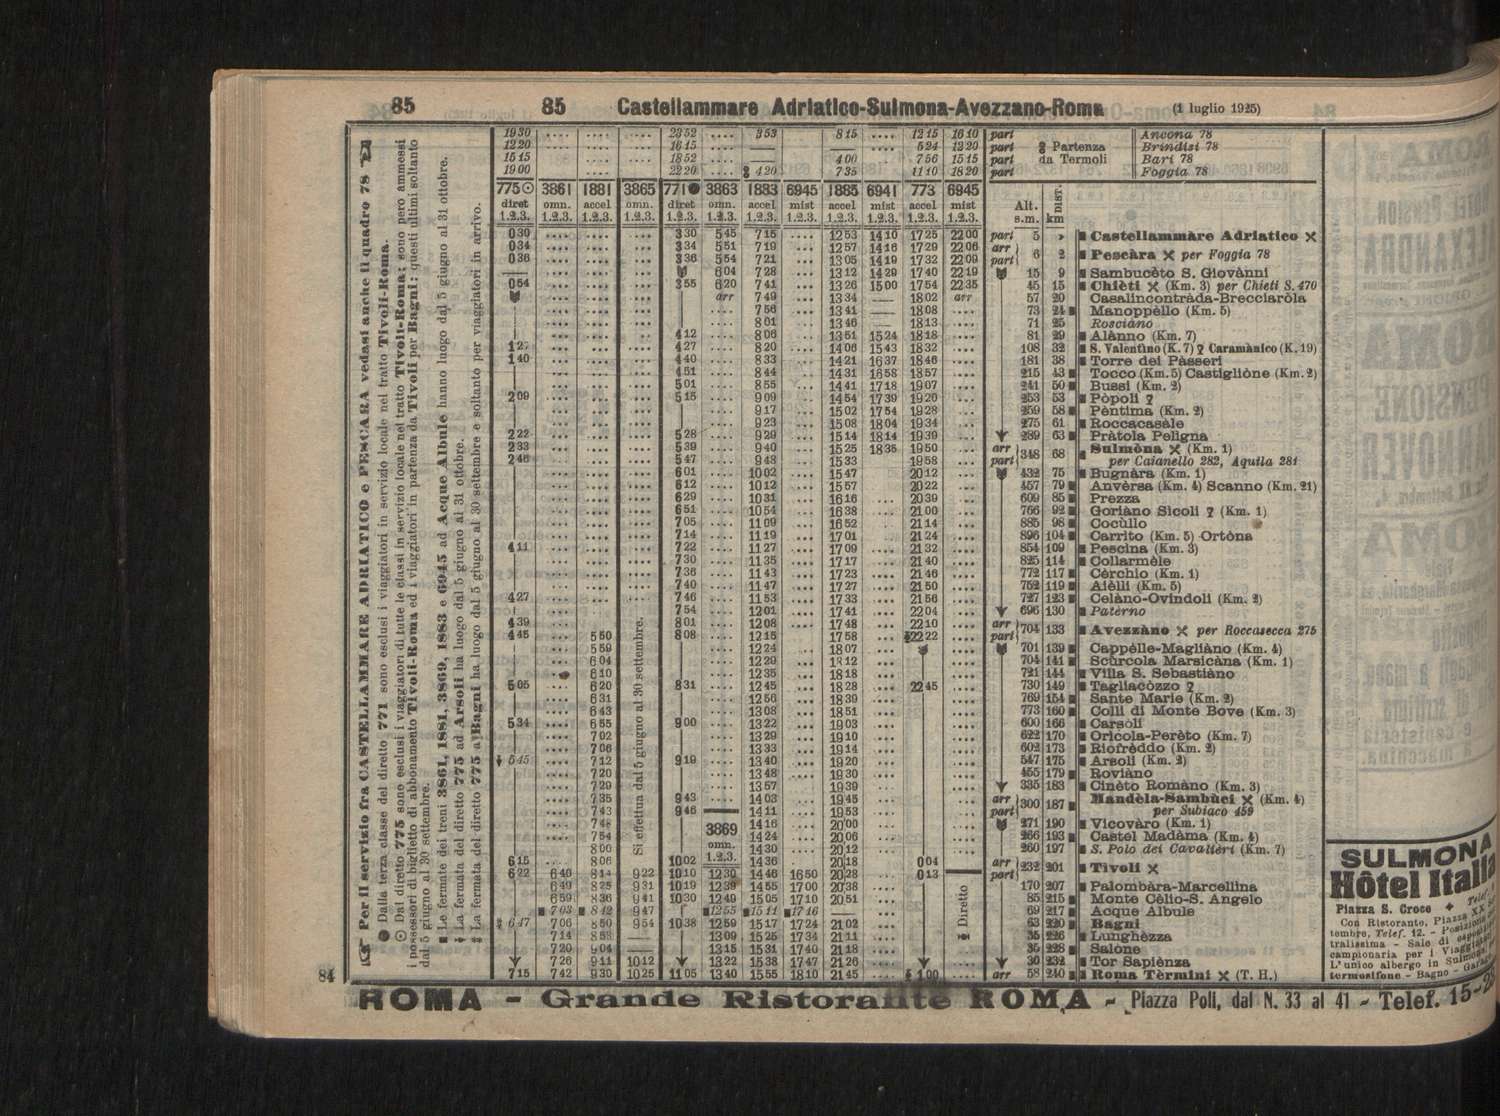 85
85 Castellammare Adriatico-Sulmona-Avezzano-Roma (1 luglio 1925)
Per il servizio fra CASTELLAMMARE ADRIATICO e PESCARA vedasi anche il quadro 78
● Dalla terza classe del diretto 771 sono esclusi i viaggiatori in servizio locale nel tratto Tivoli-Roma.
⊙ Dal diretto 775 sono esclusi i viaggiatori di tutte le classi in servizio locale nel tratto Tivoli-Roma; sono però ammessi
i possessori di biglietto di abbonamento Tivoli-Roma ed i viaggiatori in partenza da Tivoli per Bagni; questi ultimi soltanto
dal 5 giugno al 30 settembre.
■ Le fermate dei treni 3861, 1881, 3869, 1883 e 6945 ad Acque Albule hanno luogo dal 5 giugno al 31 ottobre.
La fermata del diretto 775 ad Arsoli ha luogo dal 5 giugno al 31 ottobre.
La fermata del diretto 775 a Bagni ha luogo dal 5 giugno al 30 settembre e soltanto per viaggiatori in arrivo.
1930 .... .... .... 2352 .... 353 815 .... 1215 1610 part Ancona 78
1220 .... .... .... 1615 .... — — 524 1220 part Partenza Brindisi 78
1515 .... .... 1852 .... — 400 .... 756 1515 part da Termoli Bari 78
1900 .... .... .... 2220 .... 420 735 1110 1820 part Foggia 78
775⊙ 3861 1881 3865 771● 3863 1883 6945 1885 6941 773 6945
diret omn. accel omn. diret omn. accel mist accel mist accel mist Alt. DIST.
1.2.3. 1.2.3. 1.2.3. 1.2.3. 1.2.3. 1.2.3. 1.2.3. 1.2.3. 1.2.3. 1.2.3. 1.2.3. 1.2.3. s.m. km
030 330 545 715 1253 1410 1725 2200 part 5 » Castellammàre Adriatico
034 334 551 719 1257 1416 1729 2206 arr
036 336 554 721 1305 1419 1732 2209 part 6 2 Pescàra per Foggia 78
— 604 728 1312 1429 1740 2219 15 9 Sambucèto S. Giovànni
054 355 620 741 1326 1500 1754 2235 45 15 Chièti (Km. 3) per Chieti S. 470
arr 749 1334 — 1802 arr 57 20 Casalincontràda-Brecciaròla
756 1341 — 1808 73 24 Manoppèllo (Km. 5)
801 1346 — 1813 71 25 Rosciano
412 806 1351 1524 1818 81 29 Alànno (Km. 7)
127 427 820 1406 1543 1832 108 32 S. Valentino (K. 7) Caramànico (K. 19)
140 440 833 1421 1637 1846 181 38 Torre dei Pàsseri
451 844 1431 1658 1857 215 43 Tocco (Km. 5) Castiglióne (Km. 2)
501 855 1441 1718 1907 241 50 Bussi (Km. 2)
209 515 909 1454 1739 1920 253 53 Pòpoli
917 1502 1754 1928 259 58 Pèntima (Km. 2)
923 1508 1804 1934 275 61 Roccacasàle
222 528 929 1514 1814 1939 289 63 Pràtola Peligna
233 539 940 1525 1835 1950 arr Sulmòna (Km. 1)
246 547 948 1533 1958 part 348 68 per Caianello 282, Aquila 281
601 1002 1547 2012 432 75 Bugnàra (Km. 1)
612 1012 1557 2022 457 79 Anvèrsa (Km. 4) Scanno (Km. 21)
629 1031 1616 2039 609 85 Prezza
651 1054 1638 2100 766 92 Goriàno Sicoli (Km. 1)
705 1109 1652 2114 885 98 Cocùllo
714 1119 1701 2124 896 104 Carrito (Km. 5) Ortòna
411 722 1127 1709 2132 854 109 Pescina (Km. 3)
730 1135 1717 2140 825 114 Collarmèle
736 1143 1723 2146 772 117 Cèrchio (Km. 1)
740 1147 1727 2150 752 119 Aièlli (Km. 5)
427 746 1153 1733 2156 727 123 Celàno-Ovindoli (Km. 2)
754 1201 1741 2204 696 130 Paterno
439 801 1208 1748 2210 arr
445 550 808 1215 1758 2222 part 704 133 Avezzàno per Roccasecca 275
559 1224 1807 701 139 Cappèlle-Magliàno (Km. 4)
604 1229 1812 704 141 Scùrcola Marsicàna (Km. 1)
610 1235 1818 721 144 Villa S. Sebastiàno
505 620 831 1245 1828 2245 730 149 Tagliacòzzo
631 1256 1839 769 154 Sante Marie (Km. 2)
643 1308 1851 773 160 Colli di Monte Bove (Km. 3)
534 655 900 1322 1903 600 166 Carsòli
702 1329 1910 622 170 Oricola-Perèto (Km. 7)
706 1333 1914 602 173 Riofrèddo (Km. 2)
545 712 919 1340 1920 547 175 Arsoli (Km. 2)
720 1348 1930 455 179 Roviàno
729 1357 1939 335 183 Cinèto Romàno (Km. 3)
735 943 1403 1945 arr Mandèla-Sambùci (Km. 4)
743 946 1411 1953 part 300 187 per Subiaco 459
748 1416 2000 271 190 Vicovàro (Km. 1)
754 3869 1424 2006 266 193 Castel Madàma (Km. 4)
800 omn. 1430 2012 260 197 S. Polo dei Cavalièri (Km. 7)
615 806 1002 1.2.3. 1436 2018 004 arr
622 640 814 922 1010 1230 1446 1650 2028 013 part 232 201 Tivoli
649 825 931 1019 1239 1455 1700 2038 170 207 Palombàra-Marcellina
659 836 941 1030 1249 1505 1710 2051 85 215 Monte Cèlio-S. Angelo
■703 ■842 947 ■1255 ■1511 ■1716 — 69 217 Acque Albule
647 706 850 954 1038 1259 1517 1724 2102 63 220 Bagni
714 858 1309 1525 1734 2111 35 226 Lunghèzza
720 904 — 1315 1531 1740 2118 35 228 Salóne
726 911 1012 1322 1538 1747 2126 30 232 Tor Sapiènza
715 742 930 1025 1105 1340 1555 1810 2145 100 arr 58 240 Roma Tèrmini (T. H.)
Si effettua dal 5 giugno al 30 settembre.
Diretto
84
SULMONA
Hôtel Italia
Piazza S. Croce
Con Ristorante, Piazza XX Settembre, Telef. 12.
ROMA - Grande Ristorante ROMA - Piazza Poli, dal N. 33 al 41 - Telef.